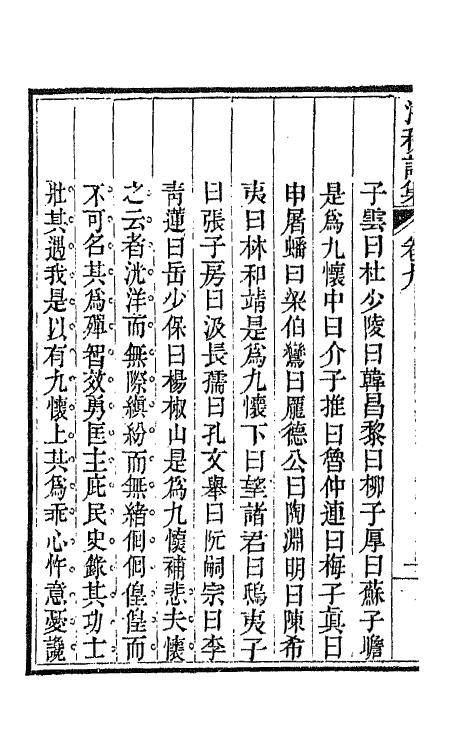 卷九
子雲曰杜少陵曰韓昌黎曰柳子厚曰蘇子瞻
是爲九懷中曰介子推曰魯仲連曰梅子眞曰
申屠蟠曰梁伯鸞曰龐德公曰陶淵明曰陳希
夷曰林和靖是爲九懷下曰望諸君曰鴟夷子
曰張子房曰汲長孺曰孔文舉曰阮嗣宗曰李
靑蓮曰岳少保曰楊椒山是爲九懷補悲夫懷
之云者洸洋而無際繽紛而無緒侗侗偟偟而
不可名其爲殫智效勇匡主庇民史錄其功士
壯其遇我是以有九懷上其爲乖心忤意憂讒